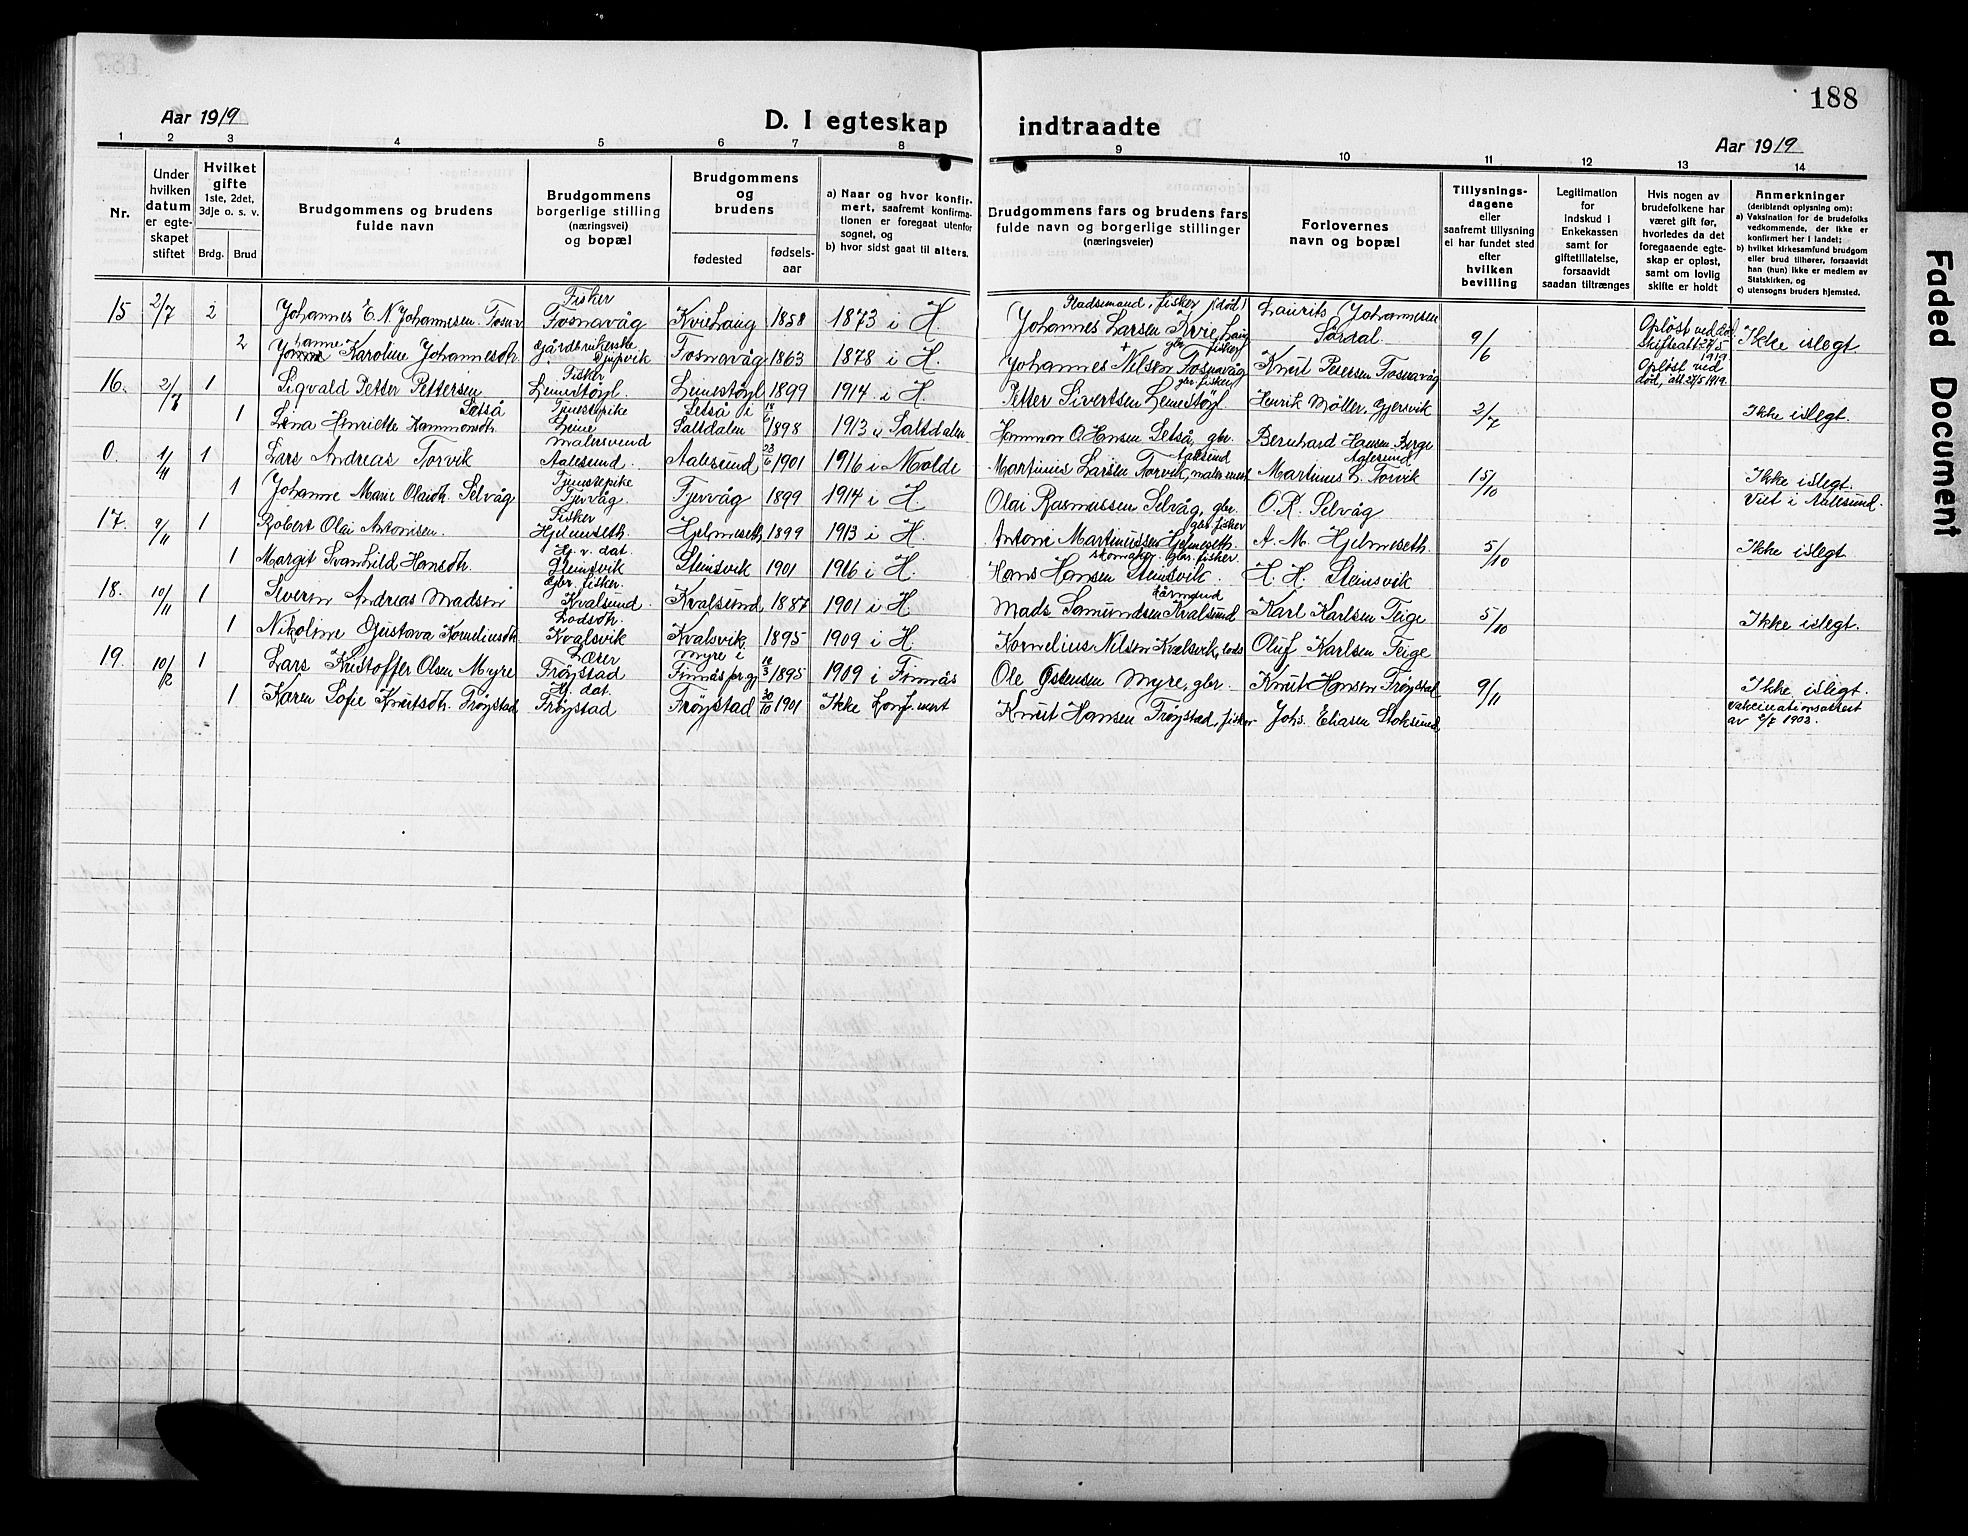 188
Aar 1919
D. I egteskap indtraadte
Aar 1919
1 2 3 4 5 6 7 8 9 10 11 12 13 14
Nr.
Under hvilken datum er egteskapet stiftet
Hvilket gifte 1ste, 2det, 3dje o. s. v.
Brdg. Brud
Brudgommens og brudens fulde navn
Brudgommens borgerlige stilling (næringsvei) og bopæl
Brudgommens og brudens
fødested
fødsels-aar
a) Naar og hvor konfirmert, saafremt konfirmationen er foregaat utenfor sognet, og
b) hvor sidst gaat til alters.
Brudgommens fars og brudens fars fulde navn og borgerlige stillinger (næringsveier)
Forlovernes navn og bopæl
Tillysningsdagene eller saafremt tillysning ei har fundet sted efter hvilken bevilling
Legitimation for indskud i Enkekassen samt for giftetillatelse, forsaavidt saadan tiltrænges
Hvis nogen av brudefolkene har været gift før, hvorledes da det foregaaende egteskap er opløst, samt om lovlig skifte er holdt
Anmerkninger (deriblandt oplysning om):
a) Vaksination for de brudefolks vedkommende, der ikke er konfirmert her i landet;
b) hvilket kirkesamfund brudgom eller brud tilhører, forsaavidt han (hun) ikke er medlem av Statskirken, og
c) utensogns bruders hjemsted.
15 2/7 2 Johannes E. N. Johannesen Fosnav Fisker Fosnavåg Kviehaug 1858 1873 i H. Pladsmand, fisker (død) Johannes Larsen Kviehaug Laurits Johannesen Sördal 9/6 Opløst ved død Skifteatt 27/5 1919 Ikke islegt
2 Johanne Karoline Johannesdt. Gårdbrukerske Djupvik Fosnavåg 1863 1878 i H. + gbr. fisker Johannes Nilsen Fosnavåg Knut Petersen Fosnavåg Opløst ved død, att. 27/5 1919.
16. 2/7 1 Sigvald Petter Pettersen Fisker Leinestöyl. Leinestöyl 1899 1914 i H. gbr. fisker Petter Sivertsen Leinestöyl. Henrik Möller, Gjersvik 2/7 Ikke islegt.
1 Lina Henriette Hammonsdt. Setså Tjenestepike Leine Setså i Saltdalen 18/6 1898 1913 i Saltdalen Hammon O. Hansen Setså, gbr. Bernhard Hansen Berge
0. 1/11 1 Lars Andreas Torvik malersvend Aalesund. Aalesund 23/6 1901 1916 i Molde Aalesund Martinus Larsen Torvik, malermest. Aalesund Martinus L. Torvik 15/10 Ikke islegt.
1 Johanne Marie Olaidt. Selvåg Tjenestepike Tjervåg Tjervåg 1899 1914 i H. Olai Rasmussen Selvåg, gbr. O. R. Selvåg Viet i Aalesund.
17. 9/11 1 Robert Olai Antonisen. Fisker Hjelmeseth. Hjelmeseth 1899 1913 i H. gbr. fisker Antoni Martinussen Hjelmeseth. A. M. Hjelmeseth. 5/10 Ikke islegt
1 Margit Svanhild Hansdt. Hj. v. dat. Steinsvik Steinsvik 1901 1916 i H. skomaker gbr. fisker Hans Hansen Steinsvik. H. H. Steinsvik
18. 10/11 1 Sverin Andreas Madsen gbr. fisker. Kvalsund. Kvalsund 1887 1901 i H. kårmand Mads Samundsen Kvalsund Karl Karlsen Teige 5/10 Ikke islegt.
1 Nikoline Gustava Korneliusdt. Lodsdt. Kvalsvik Kvalsvik 1895 1909 i H. Kornelius Nilsen Kvalsvik, lods Oluf Karlsen Teige
19. 10/12 1 Lars Kristoffer Olsen Myre Læser Frøystad Myre i Finnås pr.gj. 18/3 1895 1909 i Finnås Ole Östensen Myre, gbr. Knut Hansen Frøystad 9/11 Ikke islegt.
1 Karen Sofie Knutsdt. Frøystad Hj. dat. Frøystad Frøystad 30/10 1901 Ikke konf. mert Knut Hansen Frøystad, fisker Johs. Eliasen Stoksund Vakcinationsattest av 2/7 1903.
Faded Document